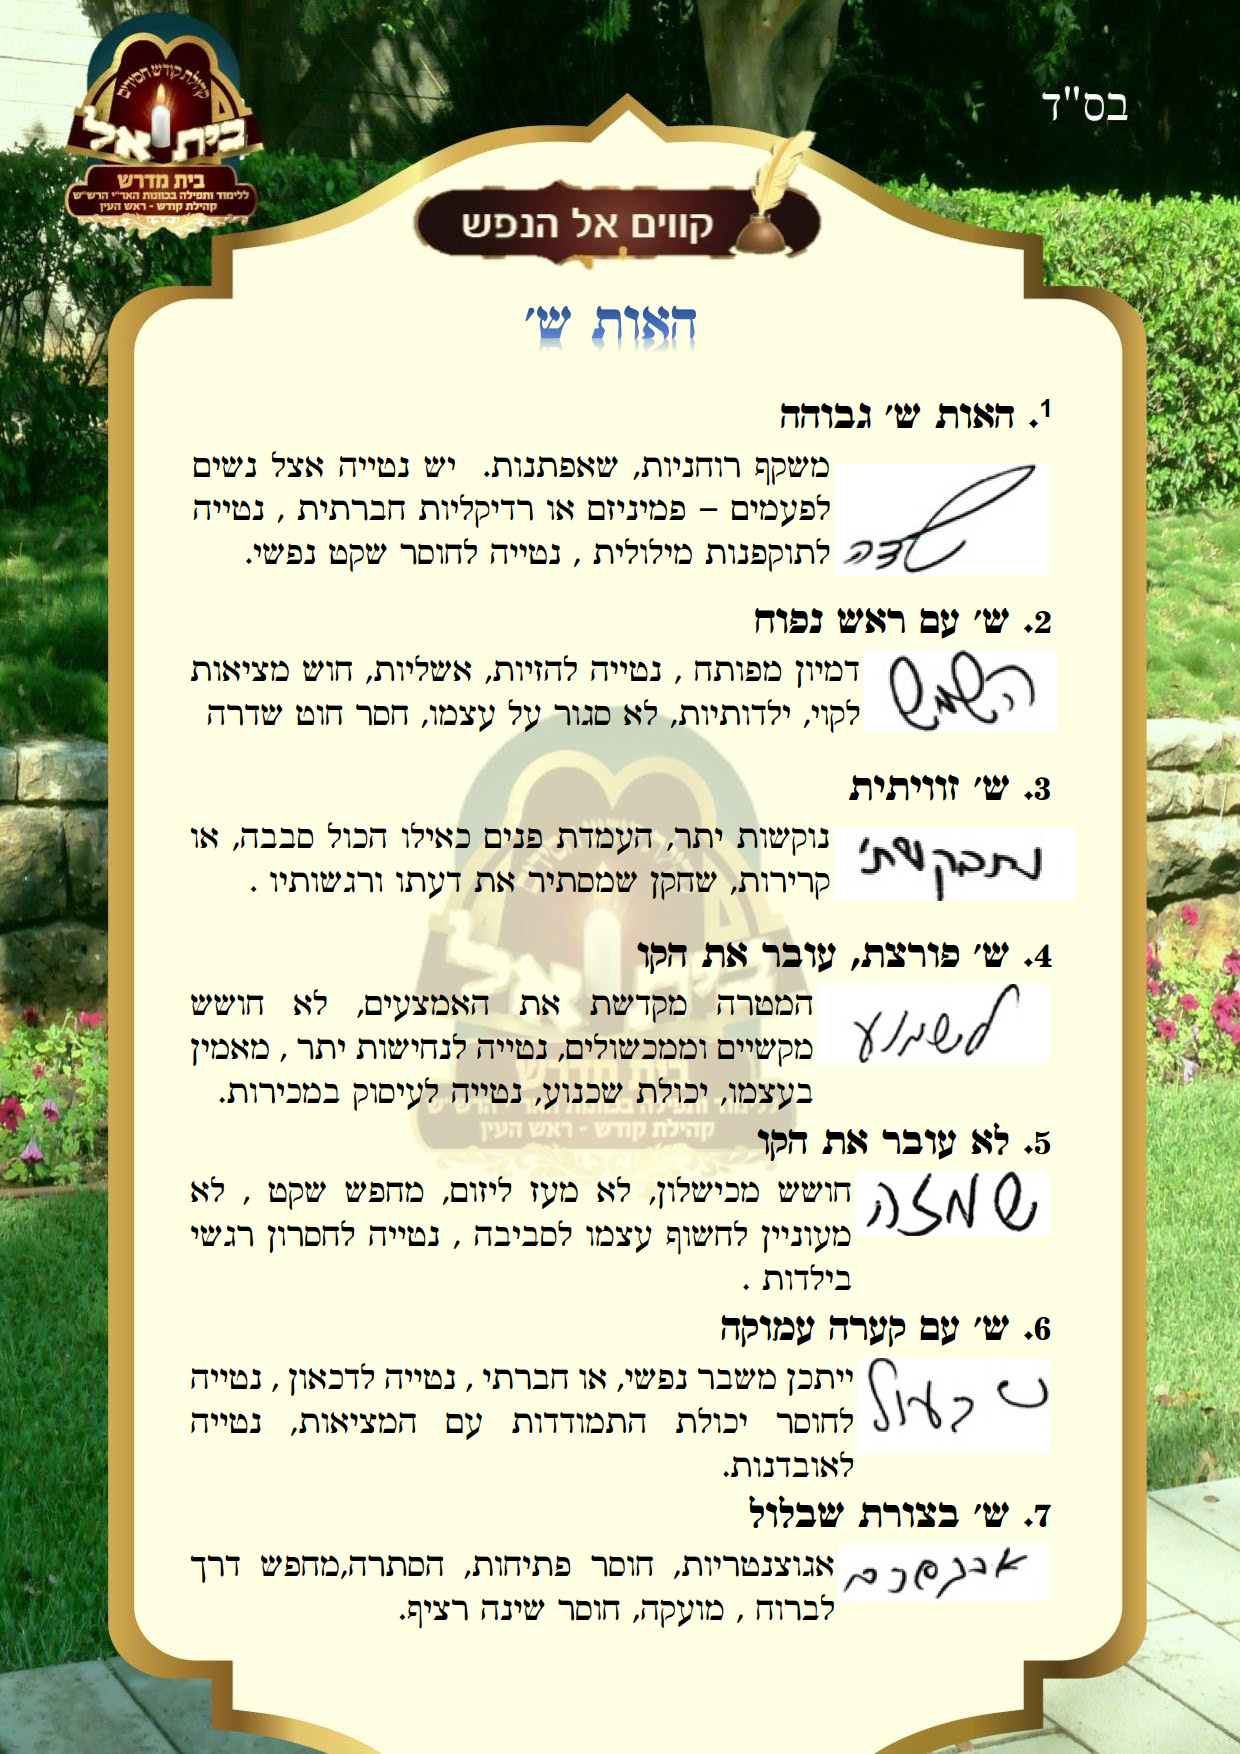 בס"ד
קהילת קודש חסידים
בית אל
בית מדרש
ללימוד ותפילה בכוונות האר"י הרש"ש
קהילת קודש - ראש העין
קווים אל הנפש
האות ש'
1. האות ש' גבוהה
משקף רוחניות, שאפתנות. יש נטייה אצל נשים
לפעמים – פמיניזם או רדיקליות חברתית , נטייה
לתוקפנות מילולית , נטייה לחוסר שקט נפשי.
שדה
2. ש' עם ראש נפוח
דמיון מפותח , נטייה להזיות, אשליות, חוש מציאות
לקוי, ילדותיות, לא סגור על עצמו, חסר חוט שדרה
השמש
3. ש' זוויתית
נוקשות יתר, העמדת פנים כאילו הכול סבבה, או
קרירות, שחקן שמסתיר את דעתו ורגשותיו .
נתבקשתי
4. ש' פורצת, עובר את הקו
המטרה מקדשת את האמצעים, לא חושש
מקשיים וממכשולים, נטייה לנחישות יתר , מאמין
בעצמו, יכולת שכנוע, נטייה לעיסוק במכירות.
לשמוע
5. לא עובר את הקו
חושש מכישלון, לא מעז ליזום, מחפש שקט , לא
מעוניין לחשוף עצמו לסביבה , נטייה לחסרון רגשי
בילדות .
ש מזה
6. ש' עם קערה עמוקה
ייתכן משבר נפשי, או חברתי , נטייה לדכאון , נטייה
לחוסר יכולת התמודדות עם המציאות, נטייה
לאובדנות.
7. ש' בצורת שבלול
אגוצנטריות, חוסר פתיחות, הסתרה,מחפש דרך
לברוח , מועקה, חוסר שינה רציף.
בית אל
בית מדרש
ללימוד ותפילה בכוונות האר"י הרש"ש
קהילת קודש - ראש העין